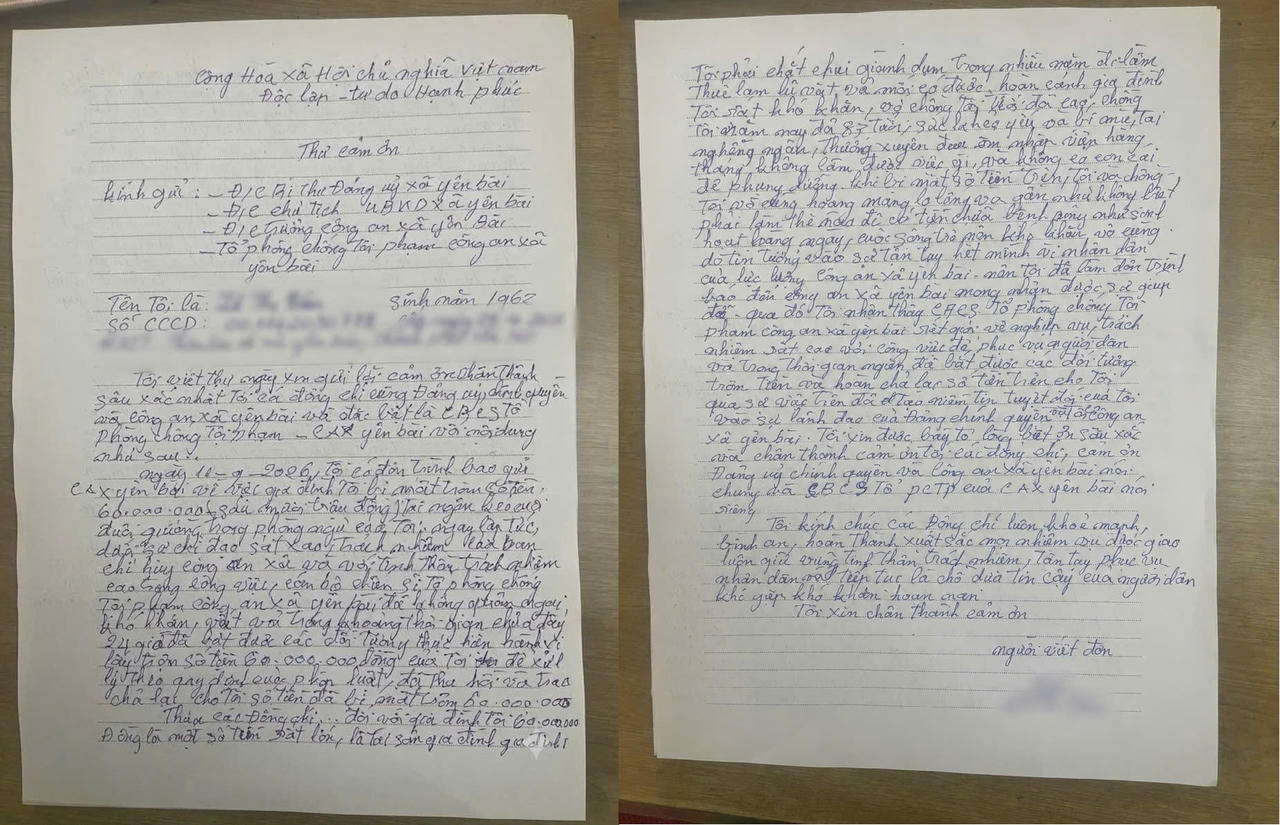 Cộng Hoà xã Hội chủ nghĩa việt nam
Độc lập - tự do Hạnh phúc
Thư cảm ơn
Kính gửi: - Đ/C Bí thư Đảng uỷ xã yên bài
- Đ/C chủ tịch UBND xã yên bài
- Đ/C trưởng công an xã yên Bài
- Tổ phòng chống Tội phạm công an xã
yên bài
Tên Tôi là: sinh năm 1962
Số CCCD:
Tôi viết thư này xin gửi lời cảm ơn chân thành
sâu xắc nhất tới cá đồng chí cùng Đảng uỷ, chính quyền
và công an xã yên bài và đặc biệt là CBCS Tổ
Phòng chống Tội phạm - CAX yên bài với nội dung
như sau:
ngày 11-9-2006, Tôi có đơn trình báo gửi
CA xyên bài về việc gia đình tôi bị mất trộm số tiền,
60.000.000 sáu mươi triệu đồng, tại ngăn kéo cuối
dưới giường trong phòng ngủ của Tôi, ngay lập tức,
dưới sự chỉ đạo sát xao, trách nhiệm của ban
chỉ huy công an xã và với tinh thần trách nhiệm
cao trong công việc, cán bộ chiến sĩ tổ phòng chống
Tội phạm công an xã yên bài đã không quản ngại,
khó khăn, vất vả trong khoảng thời gian chưa đầy
24 giờ đã bắt được các đối tượng thực hiện hành vi
lấy trộm số tiền 60.000.000 đồng của Tôi để xử
lý theo quy định của pháp luật, đã thu hồi và trao
chả lại cho Tôi số tiền đã bị mất trộm 60.000.000
Thưa các Đồng chí... đối với gia đình tôi 60.000.000
Đồng là một số tiền rất lớn, là tài sản gia đình
Tôi phải chắt chiu giành dụm trong nhiều năm đi làm
Thuê làm lụ vất vả mới có được, hoàn cảnh gia đình
Tôi rất khó khăn, vợ chồng tôi tuổi đã cao, chồng
Tôi năm nay đã 83 tuổi, sức khoẻ yếu và bị mù, tai
nghễng ngãn, thường xuyên đau ốm nhập viện hàng
tháng không làm được việc gì, và không có con cái
để phụng dưỡng. khi bị mất số tiền trên, Tôi và chồng
Tôi vô cùng hoang mang lo lắng và gần như không biết
phải làm thế nào để có tiền chữa bệnh cũng như sinh
hoạt hàng ngày, cuộc sống trở nên khó khăn vô cùng.
do tin tưởng vào sự tận tay hết mình vì nhân dân
của lực lượng công an xã yên bài - nên tôi đã làm đơn trình
báo đến công an xã yên bài mong nhận được sự giúp
đỡ - qua đó Tôi nhận thấy CBCS Tổ phòng chống Tội
phạm công an xã yên bài rất giỏi về nghiệp vụ, trách
nhiệm rất cao với công việc để phục vụ người dân
và trong thời gian ngắn đã bắt được các đối tượng
trộm tiền và hoàn chả lại số tiền trên cho Tôi
qua sự việc trên đã tạo niềm tin tuyệt đối của tôi
vào sự lãnh đạo của Đảng chính quyền và công an
xã yên bài. Tôi xin được bày tỏ lòng biết ơn sâu xắc
và chân thành cảm ơn tới các đồng chí, cảm ơn
Đảng uỷ chính quyền và công an xã yên bài nói
chung và CBCS Tổ PCTP của CAX yên bài nói
riêng
Tôi kính chúc các Đồng chí luôn khoẻ mạnh,
bình an, hoàn thành xuất sắc mọi nhiệm vụ được giao
luôn giữ vững tinh thần trách nhiệm, tận tay phục vụ
nhân dân và tiếp tục là chỗ dựa tin cậy của người dân
khi gặp khó khăn hoạn nạn
Tôi xin chân thành cảm ơn
người viết đơn